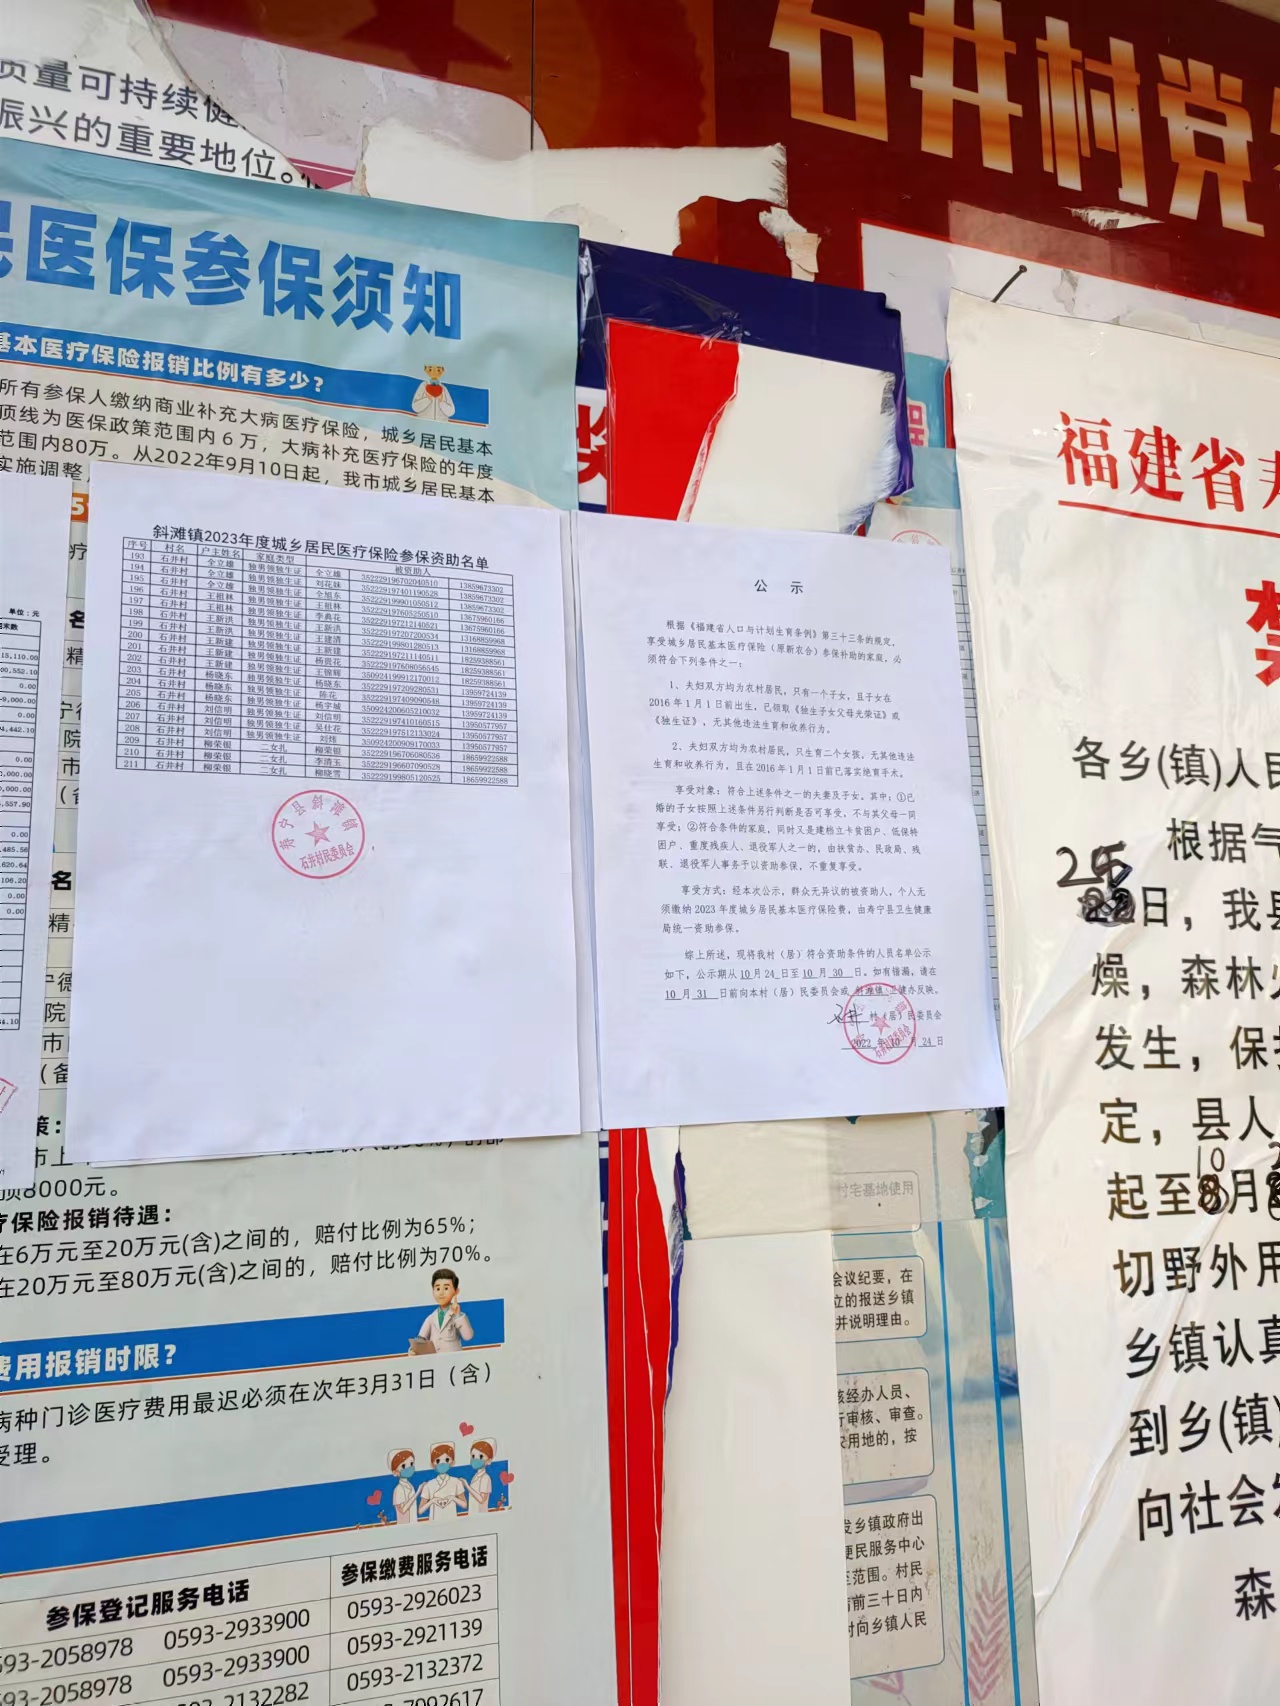 质量可持续健
振兴的重要地位。
石井村党
民医保参保须知
基本医疗保险报销比例有多少？
所有参保人缴纳商业补充大病医疗保险，城乡居民基本
顶线为医保政策范围内6万，大病补充医疗保险的年度
范围内80万。从2022年9月10日起，我市城乡居民基本
实施调整
斜滩镇2023年度城乡居民医疗保险参保资助名单
序号 村名 户主姓名 家庭类型 被资助人
193 石井村 仝立雄 独男领独生证 仝立雄 352229196702040510 13859673302
194 石井村 仝立雄 独男领独生证 刘花妹 352229197401190528 13859673302
195 石井村 仝立雄 独男领独生证 仝旭东 352229199901050512 13859673302
196 石井村 王祖林 独男领独生证 王祖林 352229197605250510 13675960166
197 石井村 王祖林 独男领独生证 李典花 352229197212140521 13675960166
198 石井村 王新洪 独男领独生证 王新洪 352229197207200534 13168859968
199 石井村 王新洪 独男领独生证 王建清 352229199801280513 13168859968
200 石井村 王新建 独男领独生证 王新建 352229197211140511 18259388561
201 石井村 王新建 独男领独生证 杨贵花 352229197608056545 18259388561
202 石井村 王新建 独男领独生证 王锦辉 350924199912170012 18259388561
203 石井村 杨晓东 独男领独生证 杨晓东 352229197209280531 13959724139
204 石井村 杨晓东 独男领独生证 陈花 352229197409090548 13959724139
205 石井村 杨晓东 独男领独生证 杨宇城 350924200605210032 13959724139
206 石井村 刘信明 独男领独生证 刘信明 352229197410160515 13950577957
207 石井村 刘信明 独男领独生证 吴仕花 352229197512133024 13950577957
208 石井村 刘信明 独男领独生证 刘炜 350924200909170033 13950577957
209 石井村 柳荣银 二女扎 柳荣银 352229196706080536 18659922588
210 石井村 柳荣银 二女扎 李清玉 352229196607090528 18659922588
211 石井村 柳荣银 二女扎 柳晓雪 352229199805120525 18659922588
寿宁县斜滩镇
石井村民委员会
公 示
根据《福建省人口与计划生育条例》第三十三条的规定，
享受城乡居民基本医疗保险（原新农合）参保补助的家庭，必
须符合下列条件之一：
1、夫妇双方均为农村居民，只有一个子女，且子女在
2016年1月1日前出生，已领取《独生子女父母光荣证》或
《独生证》，无其他违法生育和收养行为。
2、夫妇双方均为农村居民，只生育二个女孩，无其他违法
生育和收养行为，且在2016年1月1日前已落实绝育手术。
享受对象：符合上述条件之一的夫妻及子女。其中：①已
婚的子女按照上述条件另行判断是否可享受，不与其父母一同
享受；②符合条件的家庭，同时又是建档立卡贫困户、低保鲜
困户、重度残疾人、退役军人之一的，由扶贫办、民政局、残
联、退役军人事务予以资助参保，不重复享受。
享受方式：经本次公示，群众无异议的被资助人，个人无
须缴纳2023年度城乡居民基本医疗保险费，由寿宁县卫生健康
局统一资助参保。
综上所述，现将我村（居）符合资助条件的人员名单公示
如下，公示期从10月24日至10月30日。如有错漏，请在
10月31日前向本村（居）民委员会或斜滩镇卫健办反映。
石井村（居）民委员会
2022年10月24日
石井村民委员会
单位：元
顶8000元。
疗保险报销待遇：
在6万元至20万元(含)之间的，赔付比例为65%；
在20万元至80万元(含)之间的，赔付比例为70%。
费用报销时限？
病种门诊医疗费用最迟必须在次年3月31日（含）
受理。
参保登记服务电话 参保缴费服务电话
593-2058978 0593-2933900 0593-2926023
593-2058978 0593-2933900 0593-2921139
2132282 0593-2132372
村宅基地使用
会议纪要，在
立的报送乡镇
并说明理由。
核经办人员、
行审核、审查。
农用地的，按
发乡镇政府出
便民服务中心
至范围。村民
前三十日内
村向乡镇人民
福建省寿
禁
各乡(镇)人民
根据气
25
日，我县
燥，森林火
发生，保护
定，县人
起至10月
切野外用
乡镇认真
到乡(镇)
向社会发
森